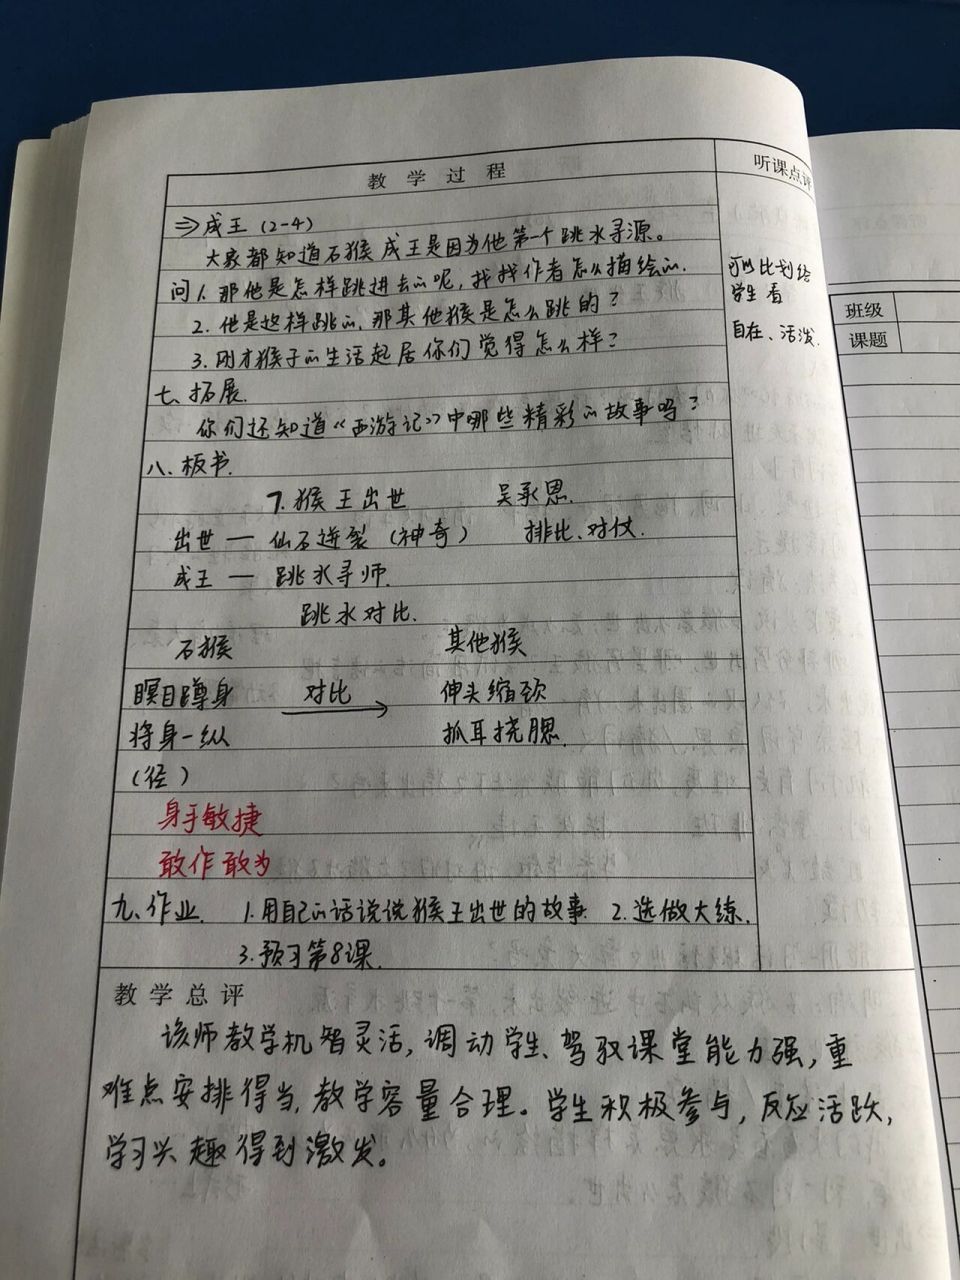 教 学 过 程
听课点评
⇒成王 (2-4)
大家都知道石猴成王是因为他第一个跳水寻源。
问1. 那他是怎样跳进去的呢,找找作者怎么描绘的.
可以比划给
学生看
2. 他是这样跳的,那其他猴是怎么跳的?
自在、活泼.
3. 刚才猴子的生活起居你们觉得怎么样?
七、拓展.
你们还知道《西游记》中哪些精彩的故事吗?
八、板书.
7. 猴王出世 吴承恩.
出世 — 仙石迸裂 (神奇) 排比、对仗.
成王 — 跳水寻师.
跳水对比.
石猴 其他猴
瞑目蹲身 对比 伸头缩颈
将身一纵 抓耳挠腮.
(径)
身手敏捷
敢作敢为
九、作业. 1. 用自己的话说说猴王出世的故事 2. 选做大练.
3. 预习第8课.
教 学 总 评
该师教学机智灵活,调动学生、驾驭课堂能力强,重
难点安排得当,教学容量合理。学生积极参与,反应活跃,
学习兴趣得到激发。
班级
课题